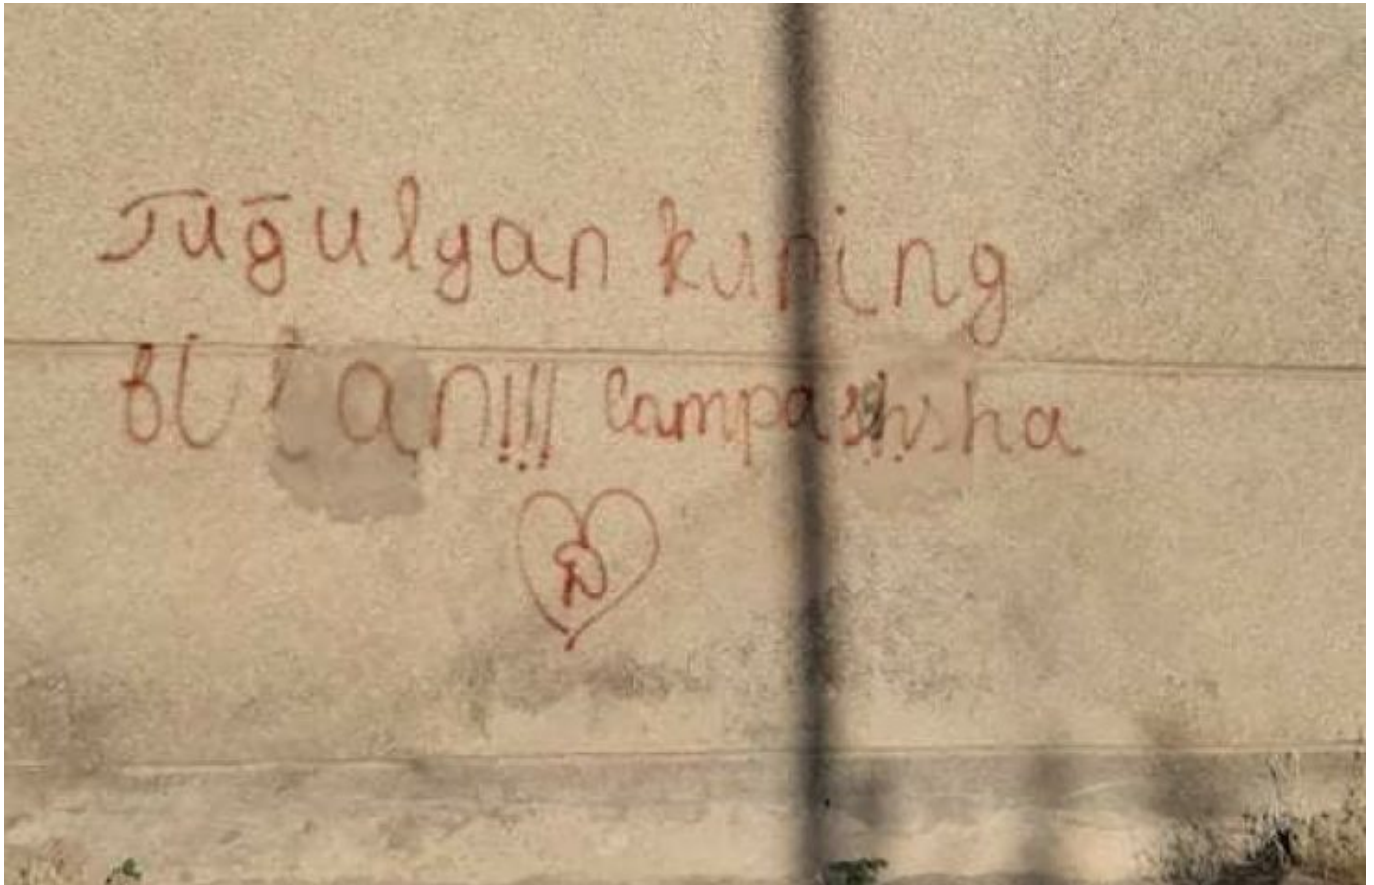 Tuḡulgan kuning
bilan!!! Lampashsha
D